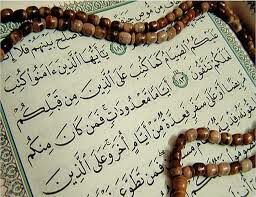 بَيْنَهُمْ فَلَا
يَٰٓأَيُّهَا ٱلَّذِينَ ءَامَنُوا۟ كُتِبَ
عَلَيْكُمُ ٱلصِّيَامُ كَمَا كُتِبَ عَلَى ٱلَّذِينَ مِن قَبْلِكُمْ
تَتَّقُونَ ١٨٣ أَيَّامًا مَّعْدُودَٰتٍ فَمَن كَانَ مِنكُم
مَّرِيضًا أَوْ عَلَىٰ سَفَرٍ فَعِدَّةٌ مِّنْ أَيَّامٍ أُخَرَ وَعَلَى ٱلَّذِينَ
فَمَن تَطَوَّعَ